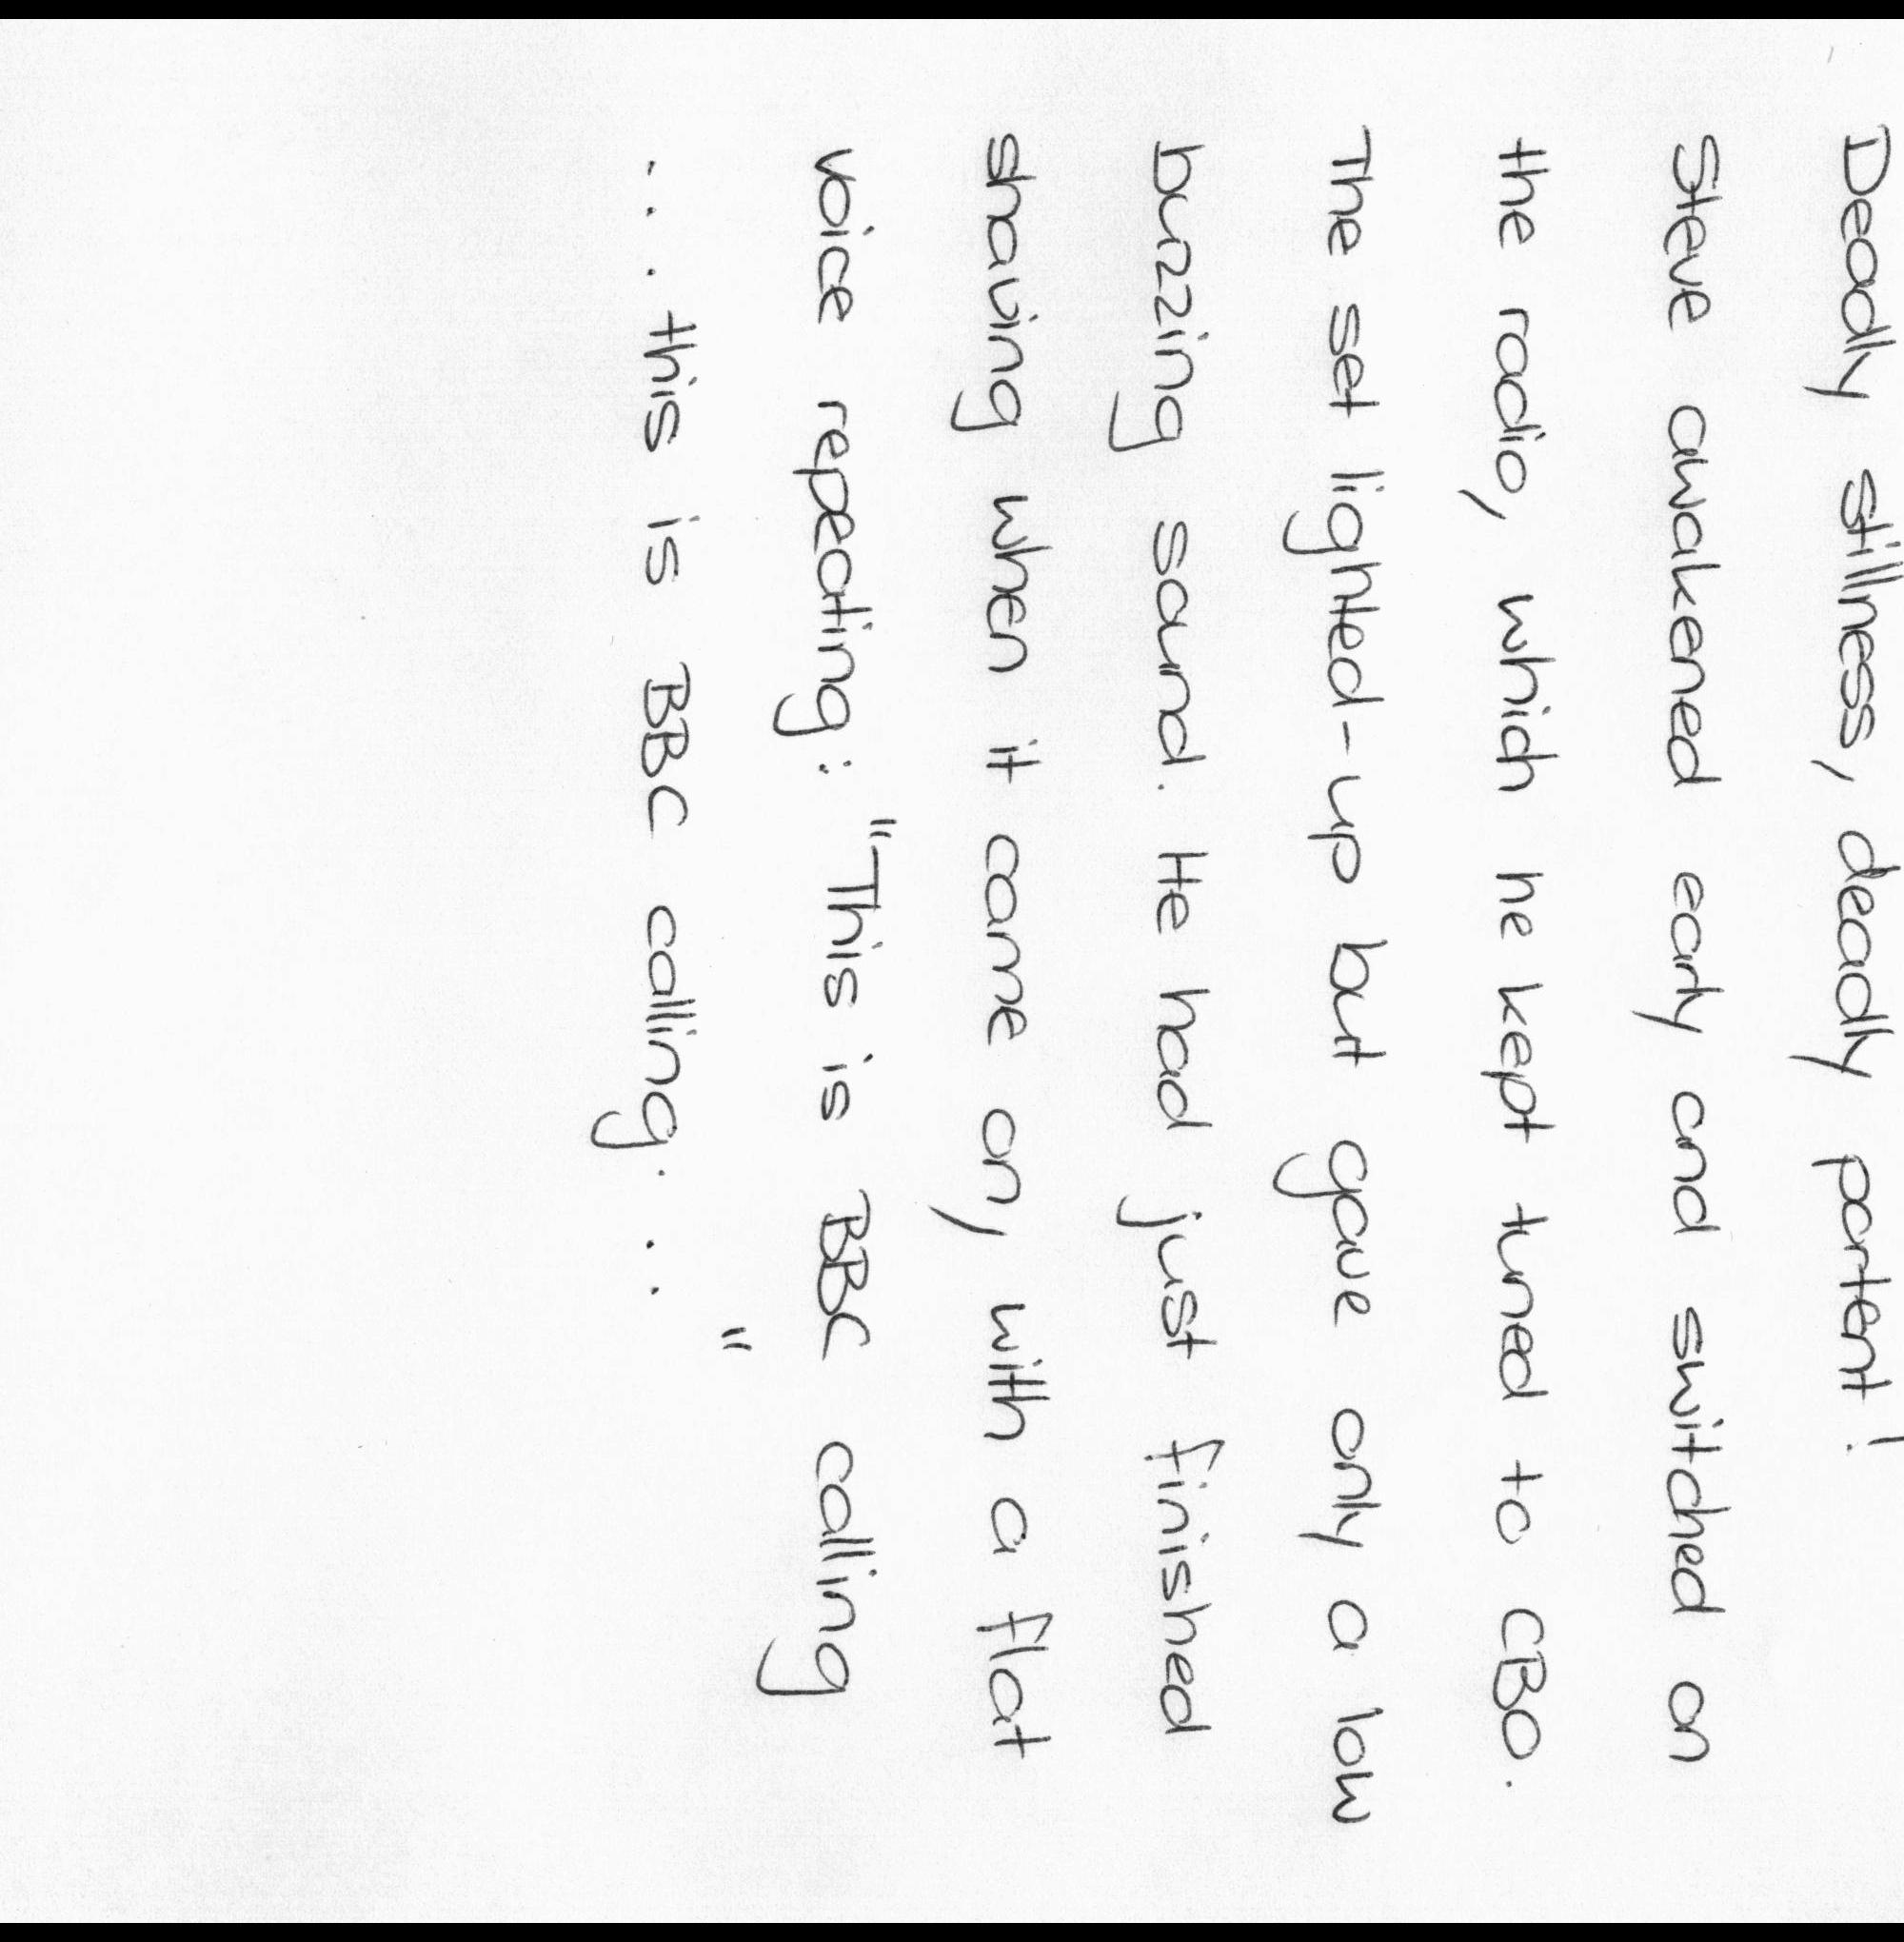 Deadly stillness, deadly portent!
Steve awakened early and switched on
the radio, which he kept tuned to CBO.
The set lighted-up but gave only a low
buzzing sound. He had just finished
shaving when it came on, with a flat
voice repeating: "This is BBC calling
... this is BBC calling. . . "